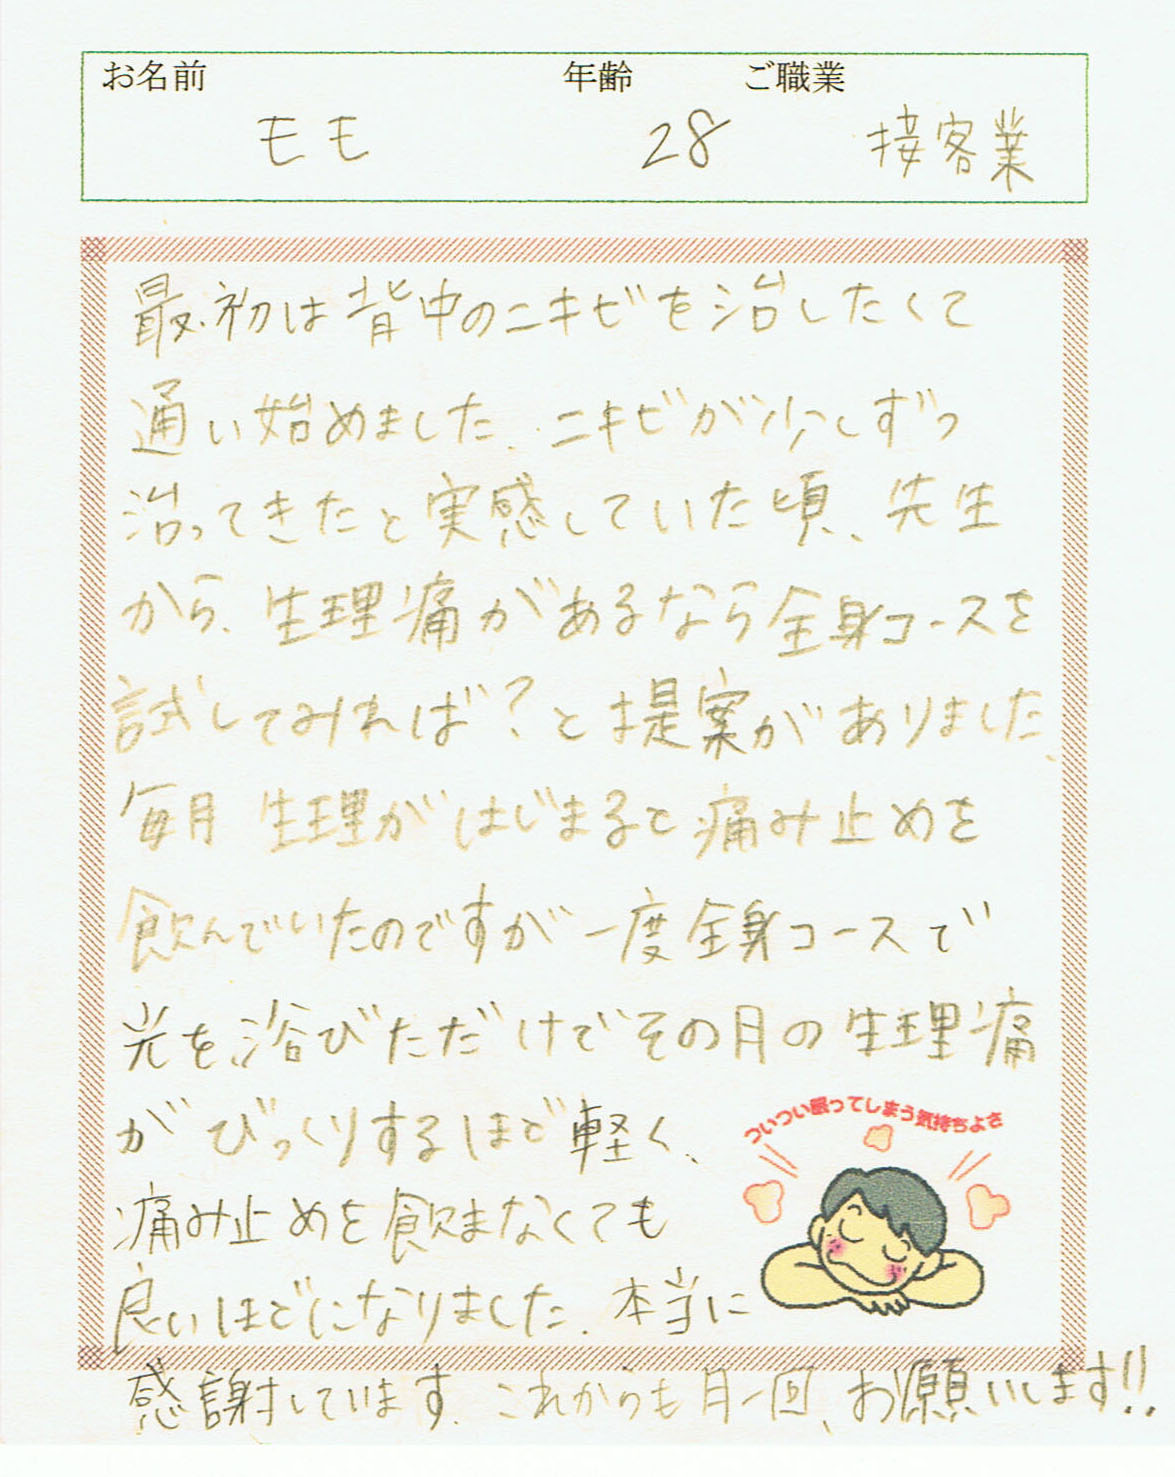 お名前 年齢 ご職業
モモ 28 接客業
最初は背中のニキビを治したくて
通い始めました。ニキビが少しずつ
治ってきたと実感していた頃、先生
から、生理痛があるなら全身コースを
試してみれば？と提案がありました。
毎月 生理がはじまると痛み止めを
飲んでいたのですが一度全身コースで
光を浴びただけでその月の生理痛
がびっくりするほど軽く、
痛み止めを飲まなくても
良いほどになりました。本当に
感謝しています。これからも月一回、お願いします!!
ついつい眠ってしまう気持ちよさ